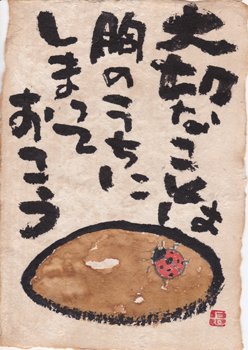 大切なことは
胸のうちに
しまって
おこう